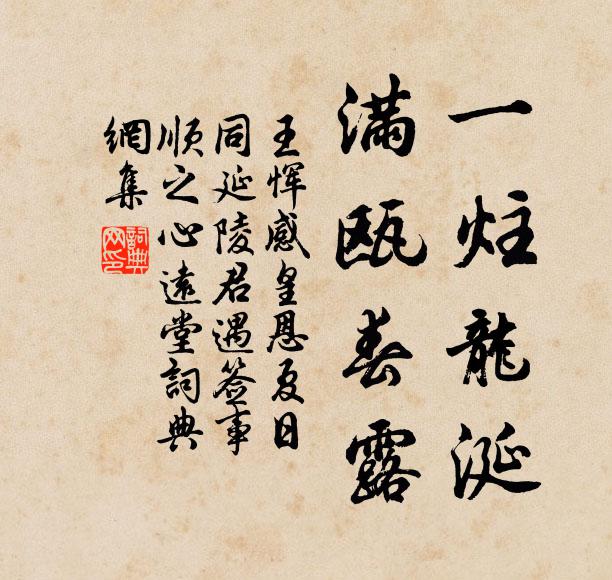 一炷龍涎
滿甌春露
王惲感皇恩夏日
同延陵君遇簽事
順之心遠堂詞典
網集
詞典
网印